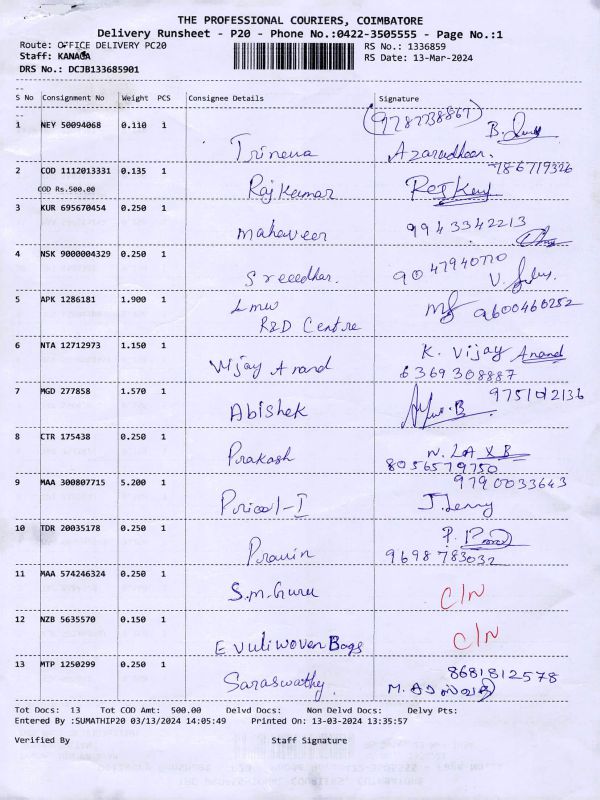 THE PROFESSIONAL COURIERS, COIMBATORE
Delivery Runsheet - P20 - Phone No.:0422-3505555 - Page No.:1
Route: OFFICE DELIVERY PC20
RS No.: 1336859
Staff: KANAGA
RS Date: 13-Mar-2024
DRS No.: DCJB133685901
S No Consignment No Weight PCS Consignee Details Signature
1 NEY 50094068 0.110 1
Azarudheen.
2 COD 1112013331 0.135 1 7186719326
COD Rs.500.00 Raj Kumar
3 KUR 695670454 0.250 1
Mahaveer 9943342213
4 NSK 9000004329 0.250 1
Sreeedhar. 9047940770
5 APK 1286181 1.900 1
LMW 9600460252
R&D Centre
6 NTA 12712973 1.150 1
Vijay Anand K. Vijay Anand
6369308887
7 MGD 277858 1.570 1
Abishek
8 CTR 175438 0.250 1
Prakash 8056579750
9 MAA 300807715 5.200 1 9790033643
Pricol-I J.Jerry
10 TDR 20035178 0.250 1
Pravin 9698783032
11 MAA 574246324 0.250 1
S.M.Guru C/N
12 NZB 5635570 0.150 1
Evuli Woven Bags C/N
13 MTP 1250299 0.250 1 8681812578
Saraswathy. M.
Tot Docs: 13 Tot COD Amt: 500.00 Delvd Docs: Non Delvd Docs: Delvy Pts:
Entered By :SUMATHIP20 03/13/2024 14:05:49 Printed On: 13-03-2024 13:35:57
Verified By Staff Signature